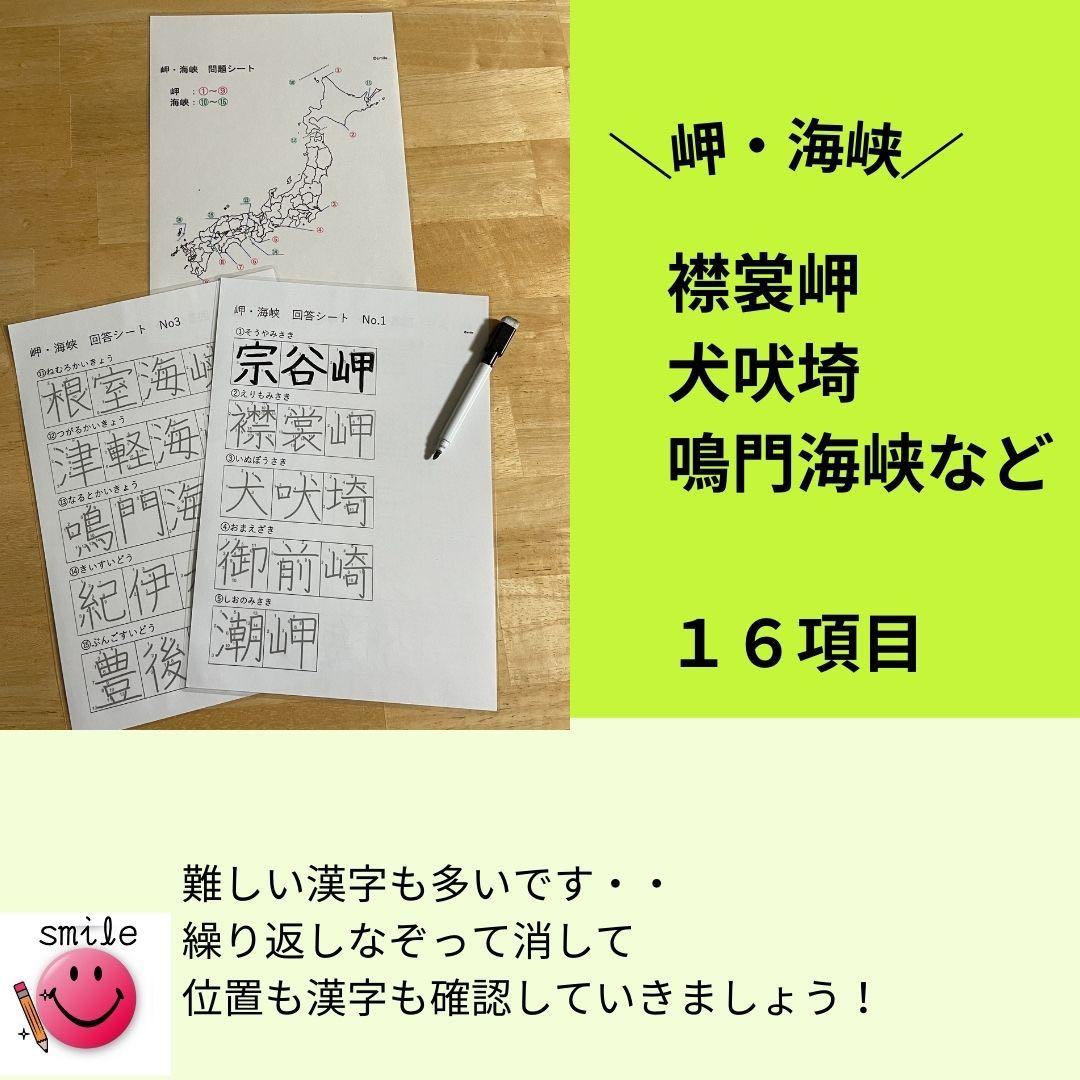 岬・海峡 問題シート
©smile
岬 :①〜⑨
海峡:⑩〜⑯
岬・海峡 回答シート No3
⑪ねむろかいきょう
根室海峡
⑫つがるかいきょう
津軽海
⑬なるとかいきょう
鳴門海
⑭きいすいどう
紀伊
⑮ぶんごすいどう
豊後
岬・海峡 回答シート No.1
①そうやみさき
宗谷岬
②えりもみさき
襟裳岬
③いぬぼうさき
犬吠埼
④おまえざき
御前崎
⑤しおのみさき
潮岬
＼岬・海峡／
襟裳岬
犬吠埼
鳴門海峡など
１６項目
難しい漢字も多いです・・
繰り返しなぞって消して
位置も漢字も確認していきましょう！
smile